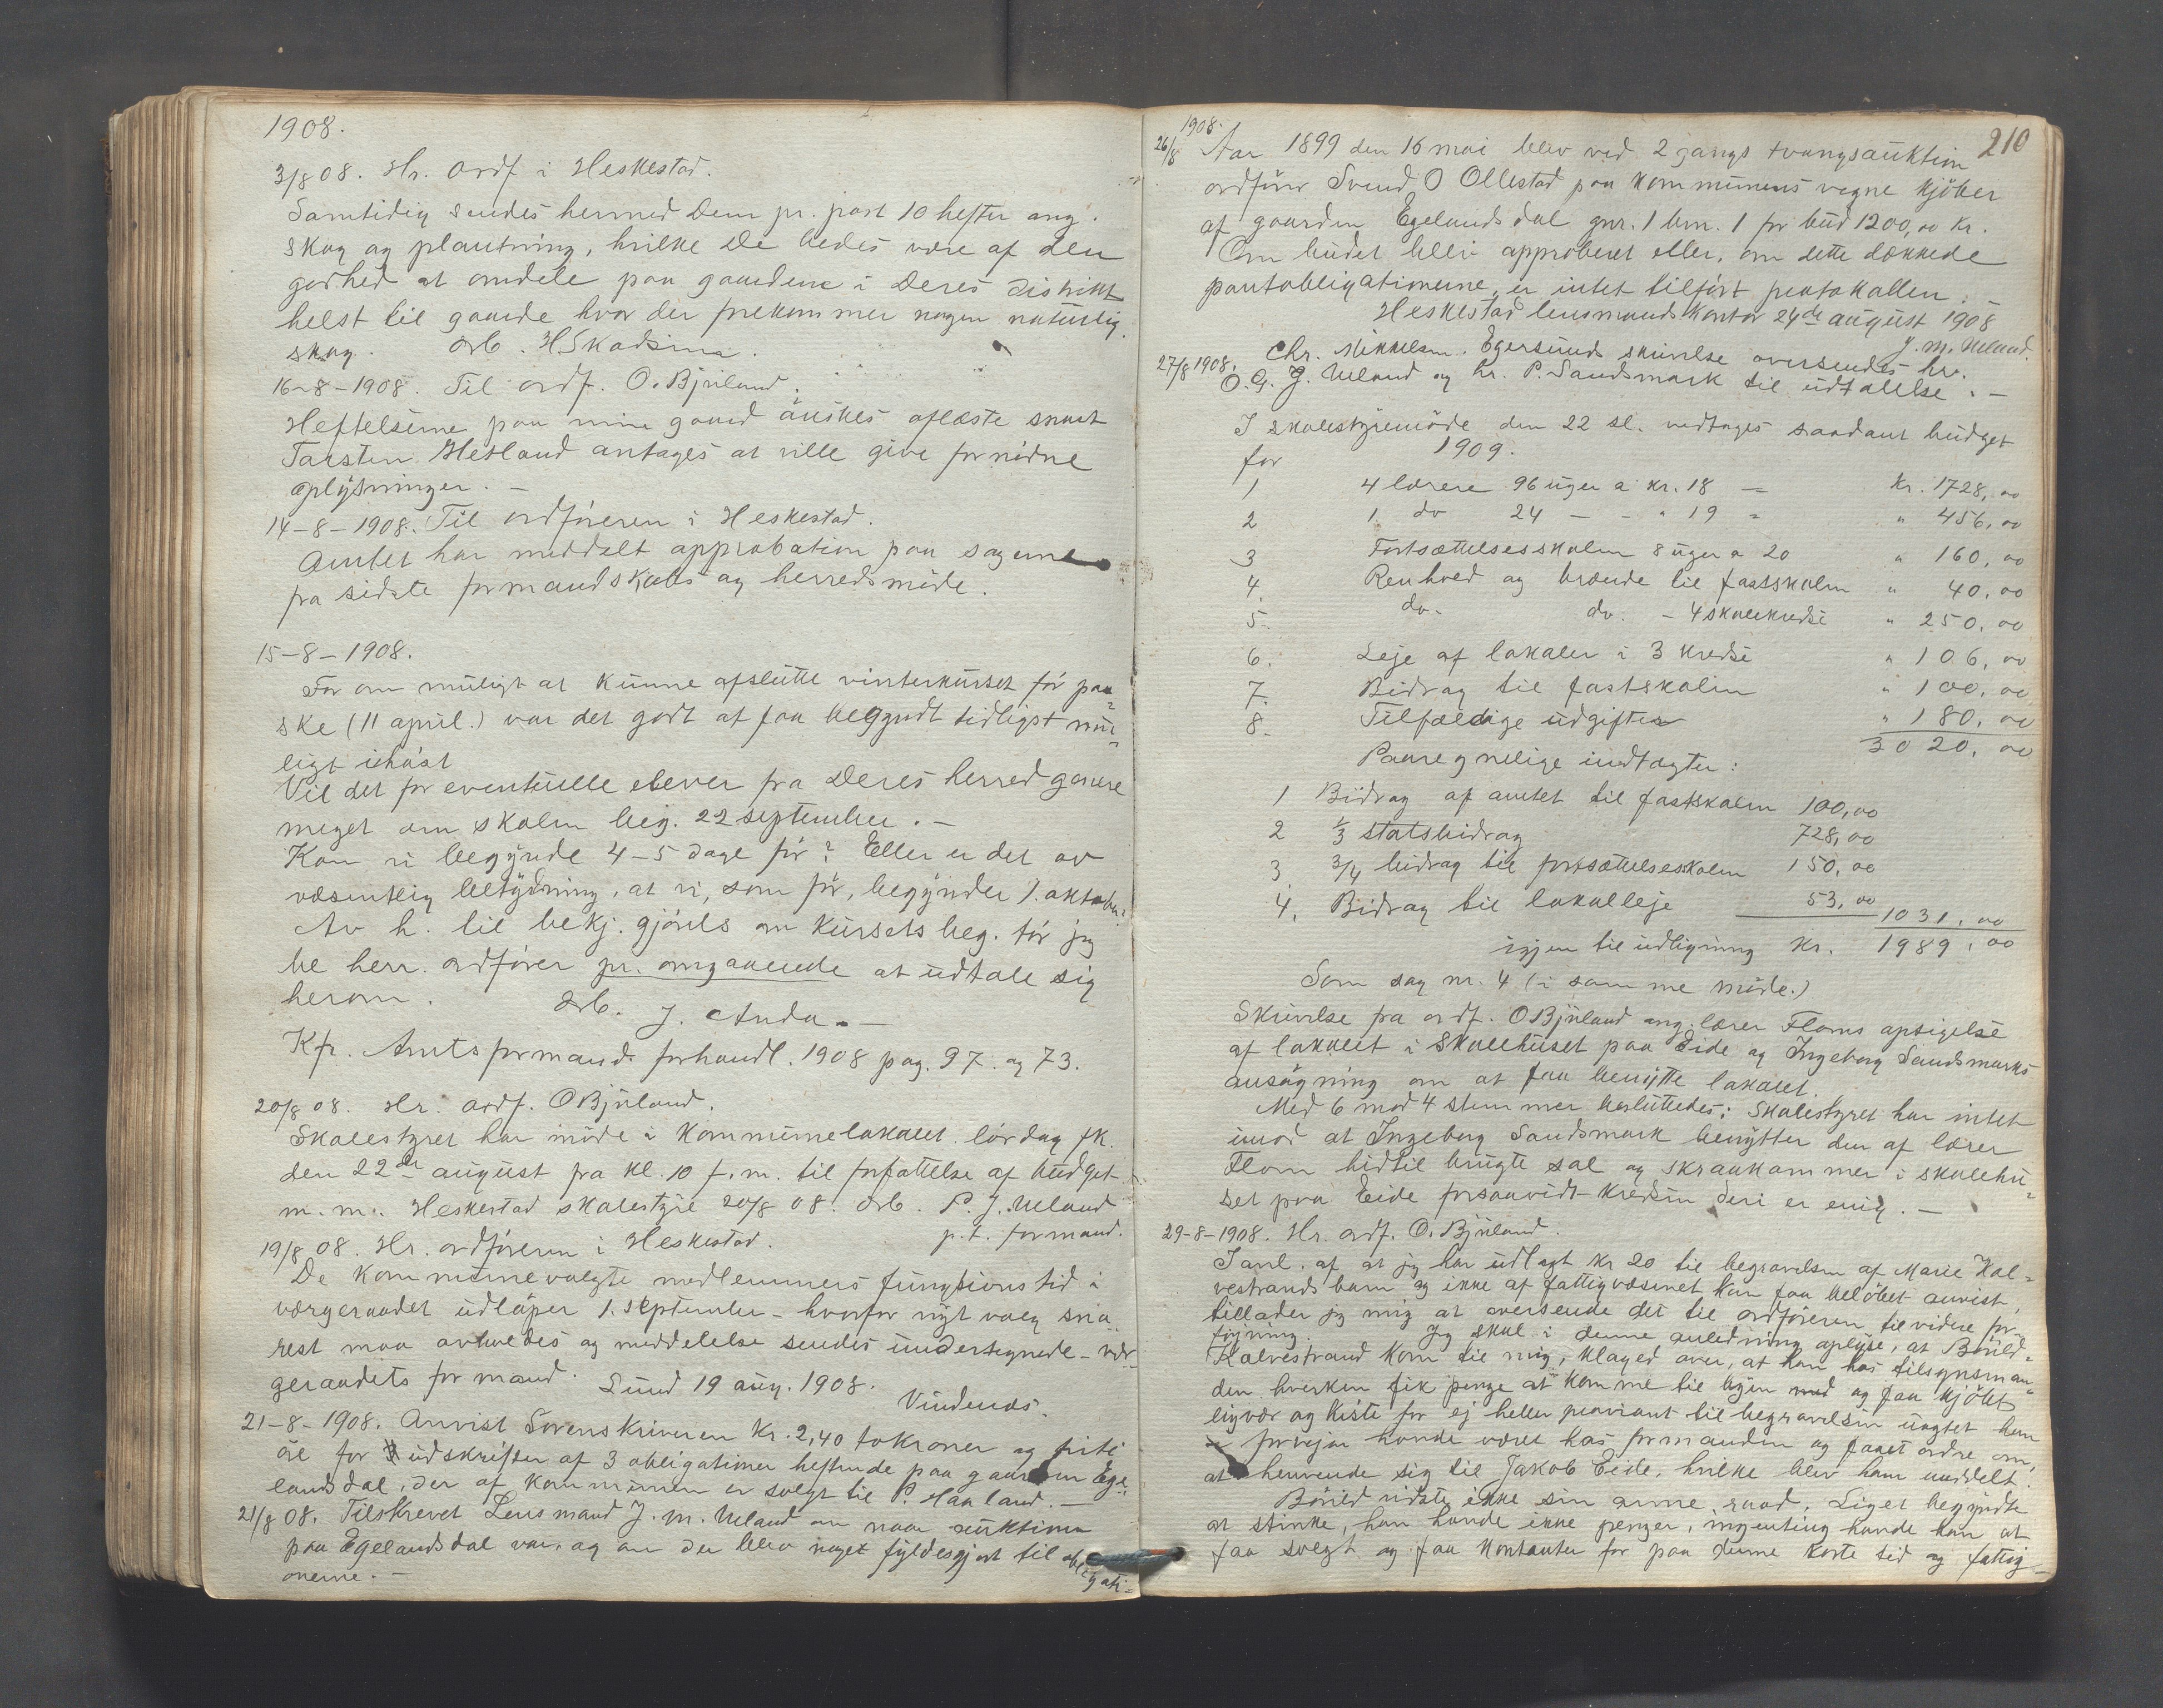 1908.
3/8 08. Hr. ordf i Heskestad.
Samtidig sendes hermed Dem pr. post 10 hefter ang.
skog og plantning, hvilke De bedes være af den
godhed at omdele paa gaardene i Deres distrikt
helst til gaarde hvor der forekommer nogen naturlig
skog. Ærb. H Skadsem.
16-8-1908. Til ordf. O. Bjuland.
Heftelserne paa min gaard ønskes aflæste snart
Torsten Hetland antages at ville give fornødne
oplysninger. —
14-8-1908. Til ordføreren i Heskestad.
Amtet har meddelt approbation paa sagerne
fra sidste formandskabs og herredsmøde.
15-8-1908.
For om muligt at kunne afslutte vinterkurset før paa-
ske (11 april.) var det godt at faa begyndt tidligst mu-
ligt ihøst
Vil det for eventuelle elever fra Deres herred genere
meget om skolen beg. 22 september. —
Kan vi begynde 4-5 dage før? Eller er det av
væsentlig betydning, at vi, som før, begynder 1. oktober?
Av h. til bekj. gjørels om kursets beg. tør jeg
be herr. ordfører pr. omgaaende at udtale sig
herom. Ærb. J. Anda. —
Kfr. Amtsformands forhandl. 1908 pag. 97. og 73.
20/8 08. Hr. ordf. O Bjuland.
Skolestyret har møde i Kommunelokalet lørdag fk.
den 22de august fra kl. 10 f.m. til forfattelse af budget
m.m. Heskestad skolestyre 20/8 08. Ærb. P. J. Ueland
p.t. formand.
19/8 08. Hr. ordføreren i Heskestad.
De kommunevalgte medlemmers funktionstid i
værgeraadet udløper 1. september - hvorfor nyt valg sna-
rest maa avholdes og meddelelse sendes undertegnede - vær-
geraadets formand. Lund 19 aug. 1908.
Vindenæs.
21-8-1908. Anvist Sorenskriveren Kr. 2,40 tokroner og firti
øre for 3 udskrifter af 3 obligationer heftende paa gaarden Ege-
landsdal, der af kommunen er solgt til P. Haaland. —
21/8 08. Tilskrevet Lensmand J. M. Ueland om naar auktionen
paa Egelandsdal var, og om der blev noget fyldesgjort til obligati-
onerne. —
210
1908.
26/8 Aar 1899 den 16 mai blev ved 2 gangs tvangsauktion
ordfører Svend O Ollestad paa kommunens vegne kjøber
af gaarden Egelandsdal gnr. 1 brn. 1 for bud 1200,00 kr.
Om budet blev approberet eller, om dette dækkede
pantobligationerne, er intet tilført protokollen. —
Heskestad lensmandskontor 24de august 1908
J. M. Ueland.
27/8 1908. Chr. Mikkelsen. Egersunds skrivelse oversendes hr.
O. G. J. Ueland og hr. P. Sandsmark til udtalelse. —
I skolestyremøde den 22 sl. vedtages saadant budget
for 1909.
1 4 lærere 96 uger a kr. 18 = Kr. 1728,00
2 1 do 24 — - " 19 = " 456,00
3 Fortsættelsesskolen 8 uger a 20 " 160,00
4. Renhold og brænde til fastskolen " 40,00
5. do. do. - 4 skolekredse " 250,00
6. Leje af lokaler i 3 kredse " 106,00
7. Bidrag til fastskolen " 100,00
8. Tilfældige udgifter " 180,00
3020,00
Paaregnelige indtægter:
1 Bidrag af amtet til fastskolen 100,00
2 1/3 statsbidrag 728,00
3. 3/4 bidrag til fortsættelsesskolen 150,00
4. Bidrag til lokalleje 53,00
1031,00
igjen til udligning Kr. 1989,00
Som sag nr. 4 (i samme møde.)
Skrivelse fra ordf. O Bjuland ang. lærer Floms opsigelse
af lokalet i skolehuset paa Eide og Ingeborg Sandsmarks
ansøgning om at faa benytte lokalet.
Med 6 mod 4 stemmer besluttedes: Skolestyret har intet
imod at Ingeborg Sandsmark benytter den af lærer
Flom hidtil brugte sal og skraakammer i skolehu-
set paa Eide forsaavidt kredsen deri er enig. —
29-8-1908. Hr. ordf. O. Bjuland.
I anl. af at jeg har udlagt kr 20 til begravelsen af Marie Kal-
vestrands barn og ikke af fattigvæsenet kan faa beløbet anvist,
tillader jeg mig at oversende det til ordføreren til videre for-
føining. Jeg skal i denne anledning oplyse, at Bøuld
Kalvestrand kom til mig, klaged over, at han hos tilsynsman-
den hverken fik penge at komme til byen med og faa kjøbt
ligvær og kiste for ej heller proviant til begravelsen uagtet han
forvejen havde været hos formanden og faaet ordre om,
at henvende sig til Jakob Eide, hvilke blev ham meddelt.
Bøuld vidste ikke sin arme raad. Liget begyndte
at stinke, han havde ikke penger, ingenting havde han at
faa solgt og faa kontanter for paa denne korte tid og fattig-